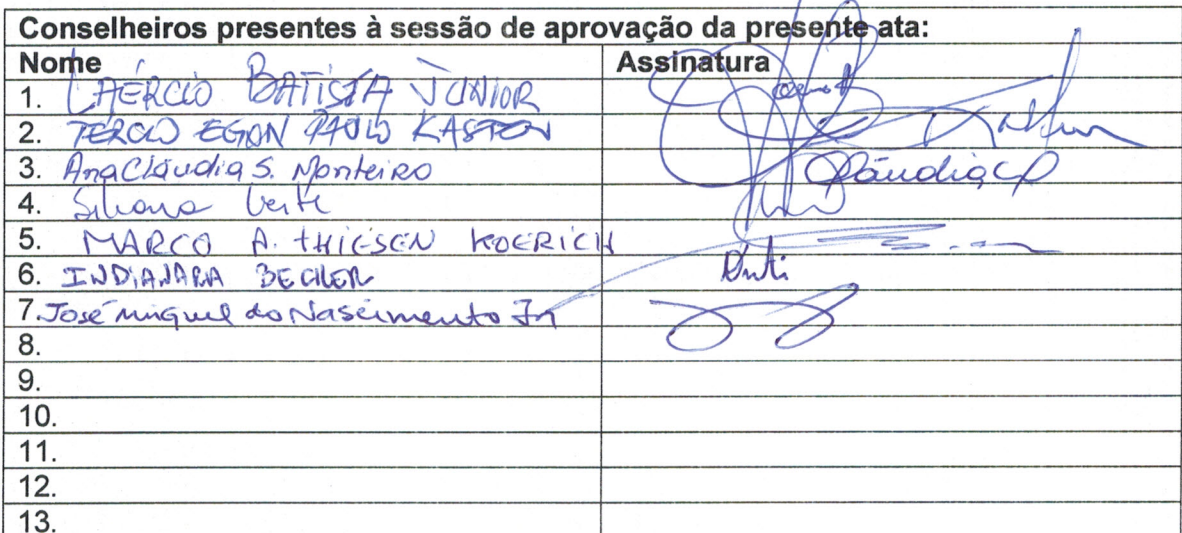 Conselheiros presentes à sessão de aprovação da presente ata:
Nome Assinatura
1. LAÉRCIO BATISTA JUNIOR
2. TERCIO EGON PAULO KASTEN
3. Ana Cláudia S. Monteiro Cláudia
4. Silvana Leite
5. MARCO A. THIESEN KOERICH
6. INDIANARA BECKER
7. José Miguel do Nascimento Jr
8.
9.
10.
11.
12.
13.